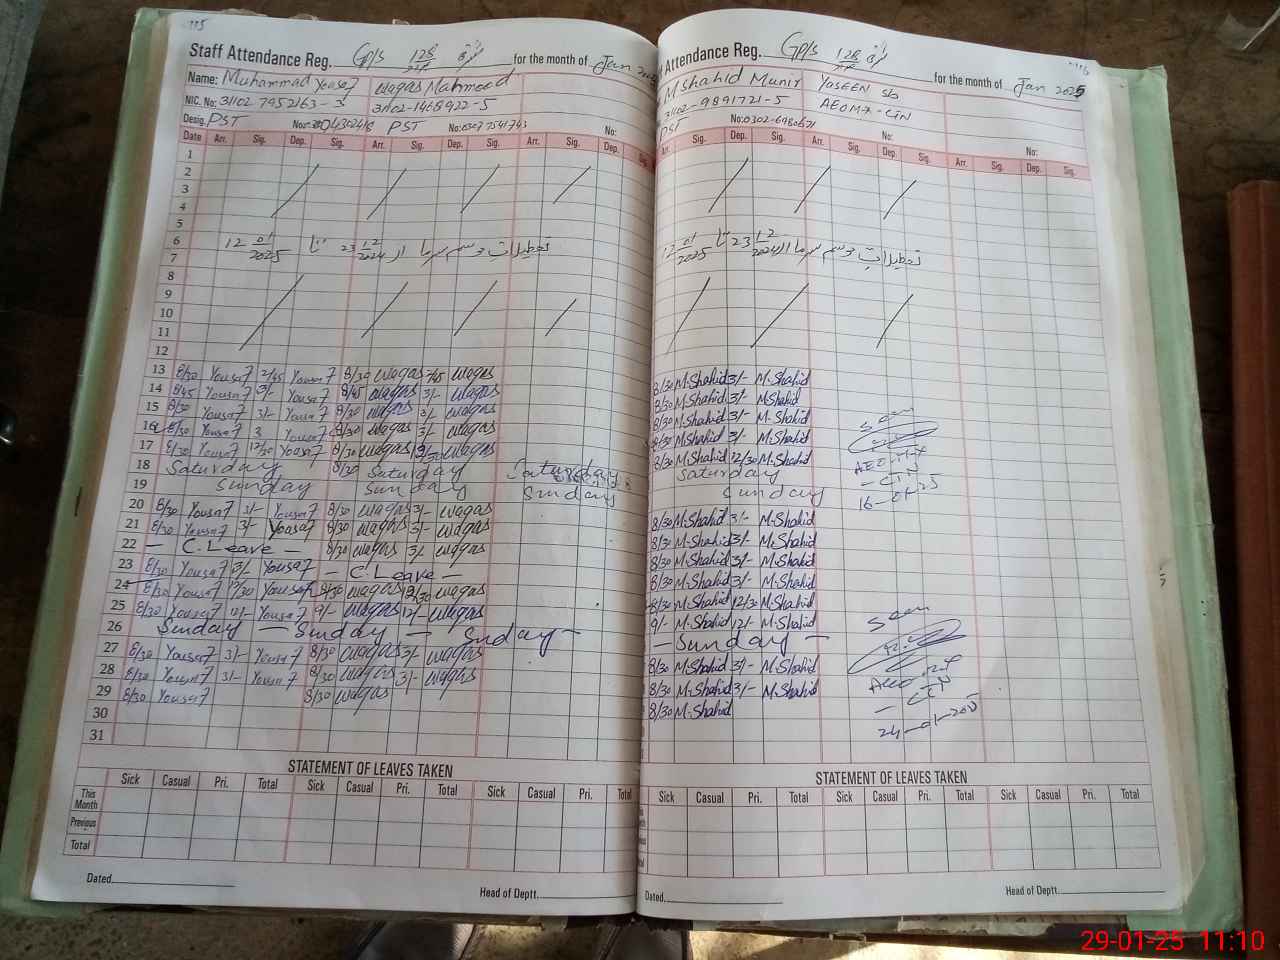 Staff Attendance Reg. GP/S 128 for the month of Jan
Name: Muhammad Yousaf Waqas Mahmood
NIC. No: 31102 7952163-3 31102-1468922-5
Desig. PST No: PST No: 03077541743 No:
Date Arr. Sig. Dep. Sig. Arr. Sig. Dep. Sig. Arr. Sig. Dep. Sig.
1
2
3
4
5
6 12 01/2025 تا 23 12/2024 تعطیلات موسم سرما از
7
8
9
10
11
12
13 8/30 Yousaf 2/45 Yousaf 8/30 Waqas 2/45 Waqas
14 8/45 Yousaf 3/- Yousaf 8/45 Waqas 3/- Waqas
15 8/30 Yousaf 3/- Yousaf 8/30 Waqas 3/- Waqas
16 8/30 Yousaf 3 Yousaf 8/30 Waqas 3/- Waqas
17 8/30 Yousaf 12/30 Yousaf 8/30 Waqas 12/30 Waqas
18 Saturday 8/30 Saturday Saturday
19 Sunday Sunday Sunday
20 8/30 Yousaf 3/- Yousaf 8/30 Waqas 3/- Waqas
21 8/30 Yousaf 3/- Yousaf 8/30 Waqas 3/- Waqas
22 — C. Leave — 8/30 Waqas 3/- Waqas
23 8/30 Yousaf 3/- Yousaf — C. Leave —
24 8/30 Yousaf 12/30 Yousaf 8/30 Waqas 12/30 Waqas
25 8/30 Yousaf 12/- Yousaf 9/- Waqas 12/- Waqas
26 Sunday — Sunday — Sunday —
27 8/30 Yousaf 3/- Yousaf 8/30 Waqas 3/- Waqas
28 8/30 Yousaf 3/- Yousaf 8/30 Waqas 3/- Waqas
29 8/30 Yousaf 8/30 Waqas
30
31
STATEMENT OF LEAVES TAKEN
Sick Casual Pri. Total Sick Casual Pri. Total Sick Casual Pri. Total
This Month
Previous
Total
Dated Head of Deptt.
Attendance Reg. GP/S 128 for the month of Jan 2025
M Shahid Munir YASEEN
31102-9891721-5 AEOM7-CTN
PST No: 0302-6980671 No:
Arr. Sig. Dep. Sig. Arr. Sig. Dep. Sig. Arr. Sig. Dep. Sig.
12 01/2025 تا 23 12/2024 تعطیلات موسم سرما از
8/30 M.Shahid 3/- M.Shahid
8/30 M.Shahid 3/- M.Shahid
8/30 M.Shahid 3/- M.Shahid
8/30 M.Shahid 3/- M.Shahid
8/30 M.Shahid 12/30 M.Shahid
Saturday
Sunday
Seen
CTN
16-01-25
8/30 M.Shahid 3/- M.Shahid
8/30 M.Shahid 3/- M.Shahid
8/30 M.Shahid 3/- M.Shahid
8/30 M.Shahid 3/- M.Shahid
8/30 M.Shahid 12/30 M.Shahid
9/- M.Shahid 12/- M.Shahid
— Sunday —
8/30 M.Shahid 3/- M.Shahid
8/30 M.Shahid 3/- M.Shahid
8/30 M.Shahid
Seen
CTN
24-01-2025
STATEMENT OF LEAVES TAKEN
Sick Casual Pri. Total Sick Casual Pri. Total Sick Casual Pri. Total
Dated Head of Deptt.
29-01-25 11:10